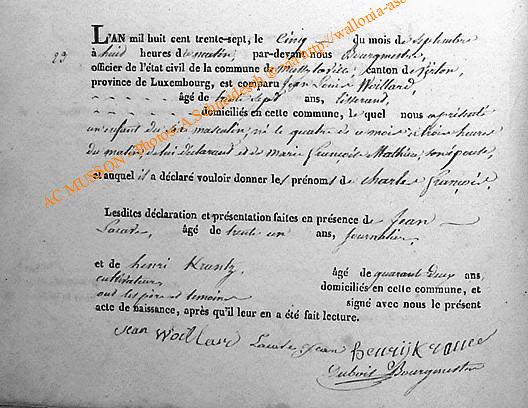 29
L'AN mil huit cent trente-sept, le Cinq du mois de Septembre
à huit heures de matin, par-devant nous Bourgmestre,
officier de l'état civil de la commune de canton de Virton,
province de Luxembourg, est comparu Jean Louis Woillard,
âgé de trente sept ans, tisserand,
domiciliés en cette commune, lequel nous a présenté
un enfant du sexe masculin, né le quatre de ce mois à trois heures
du matin, de lui déclarant et de marie françoise Mathieu, son épouse,
et auquel il a déclaré vouloir donner les prénoms de charles françois,
Lesdites déclaration et présentation faites en présence de Jean
âgé de trente un ans, journalier,
et de henri Krantz, âgé de quarant deux ans,
cultivateur, domiciliés en cette commune, et
ont les père et temoins signé avec nous le présent
acte de naissance, après qu'il leur en a été fait lecture.
Jean Woillard Jean Henri
Dubois Bourgmestre
AC MUSSON Photos A Schmadesch http://wallonia-as